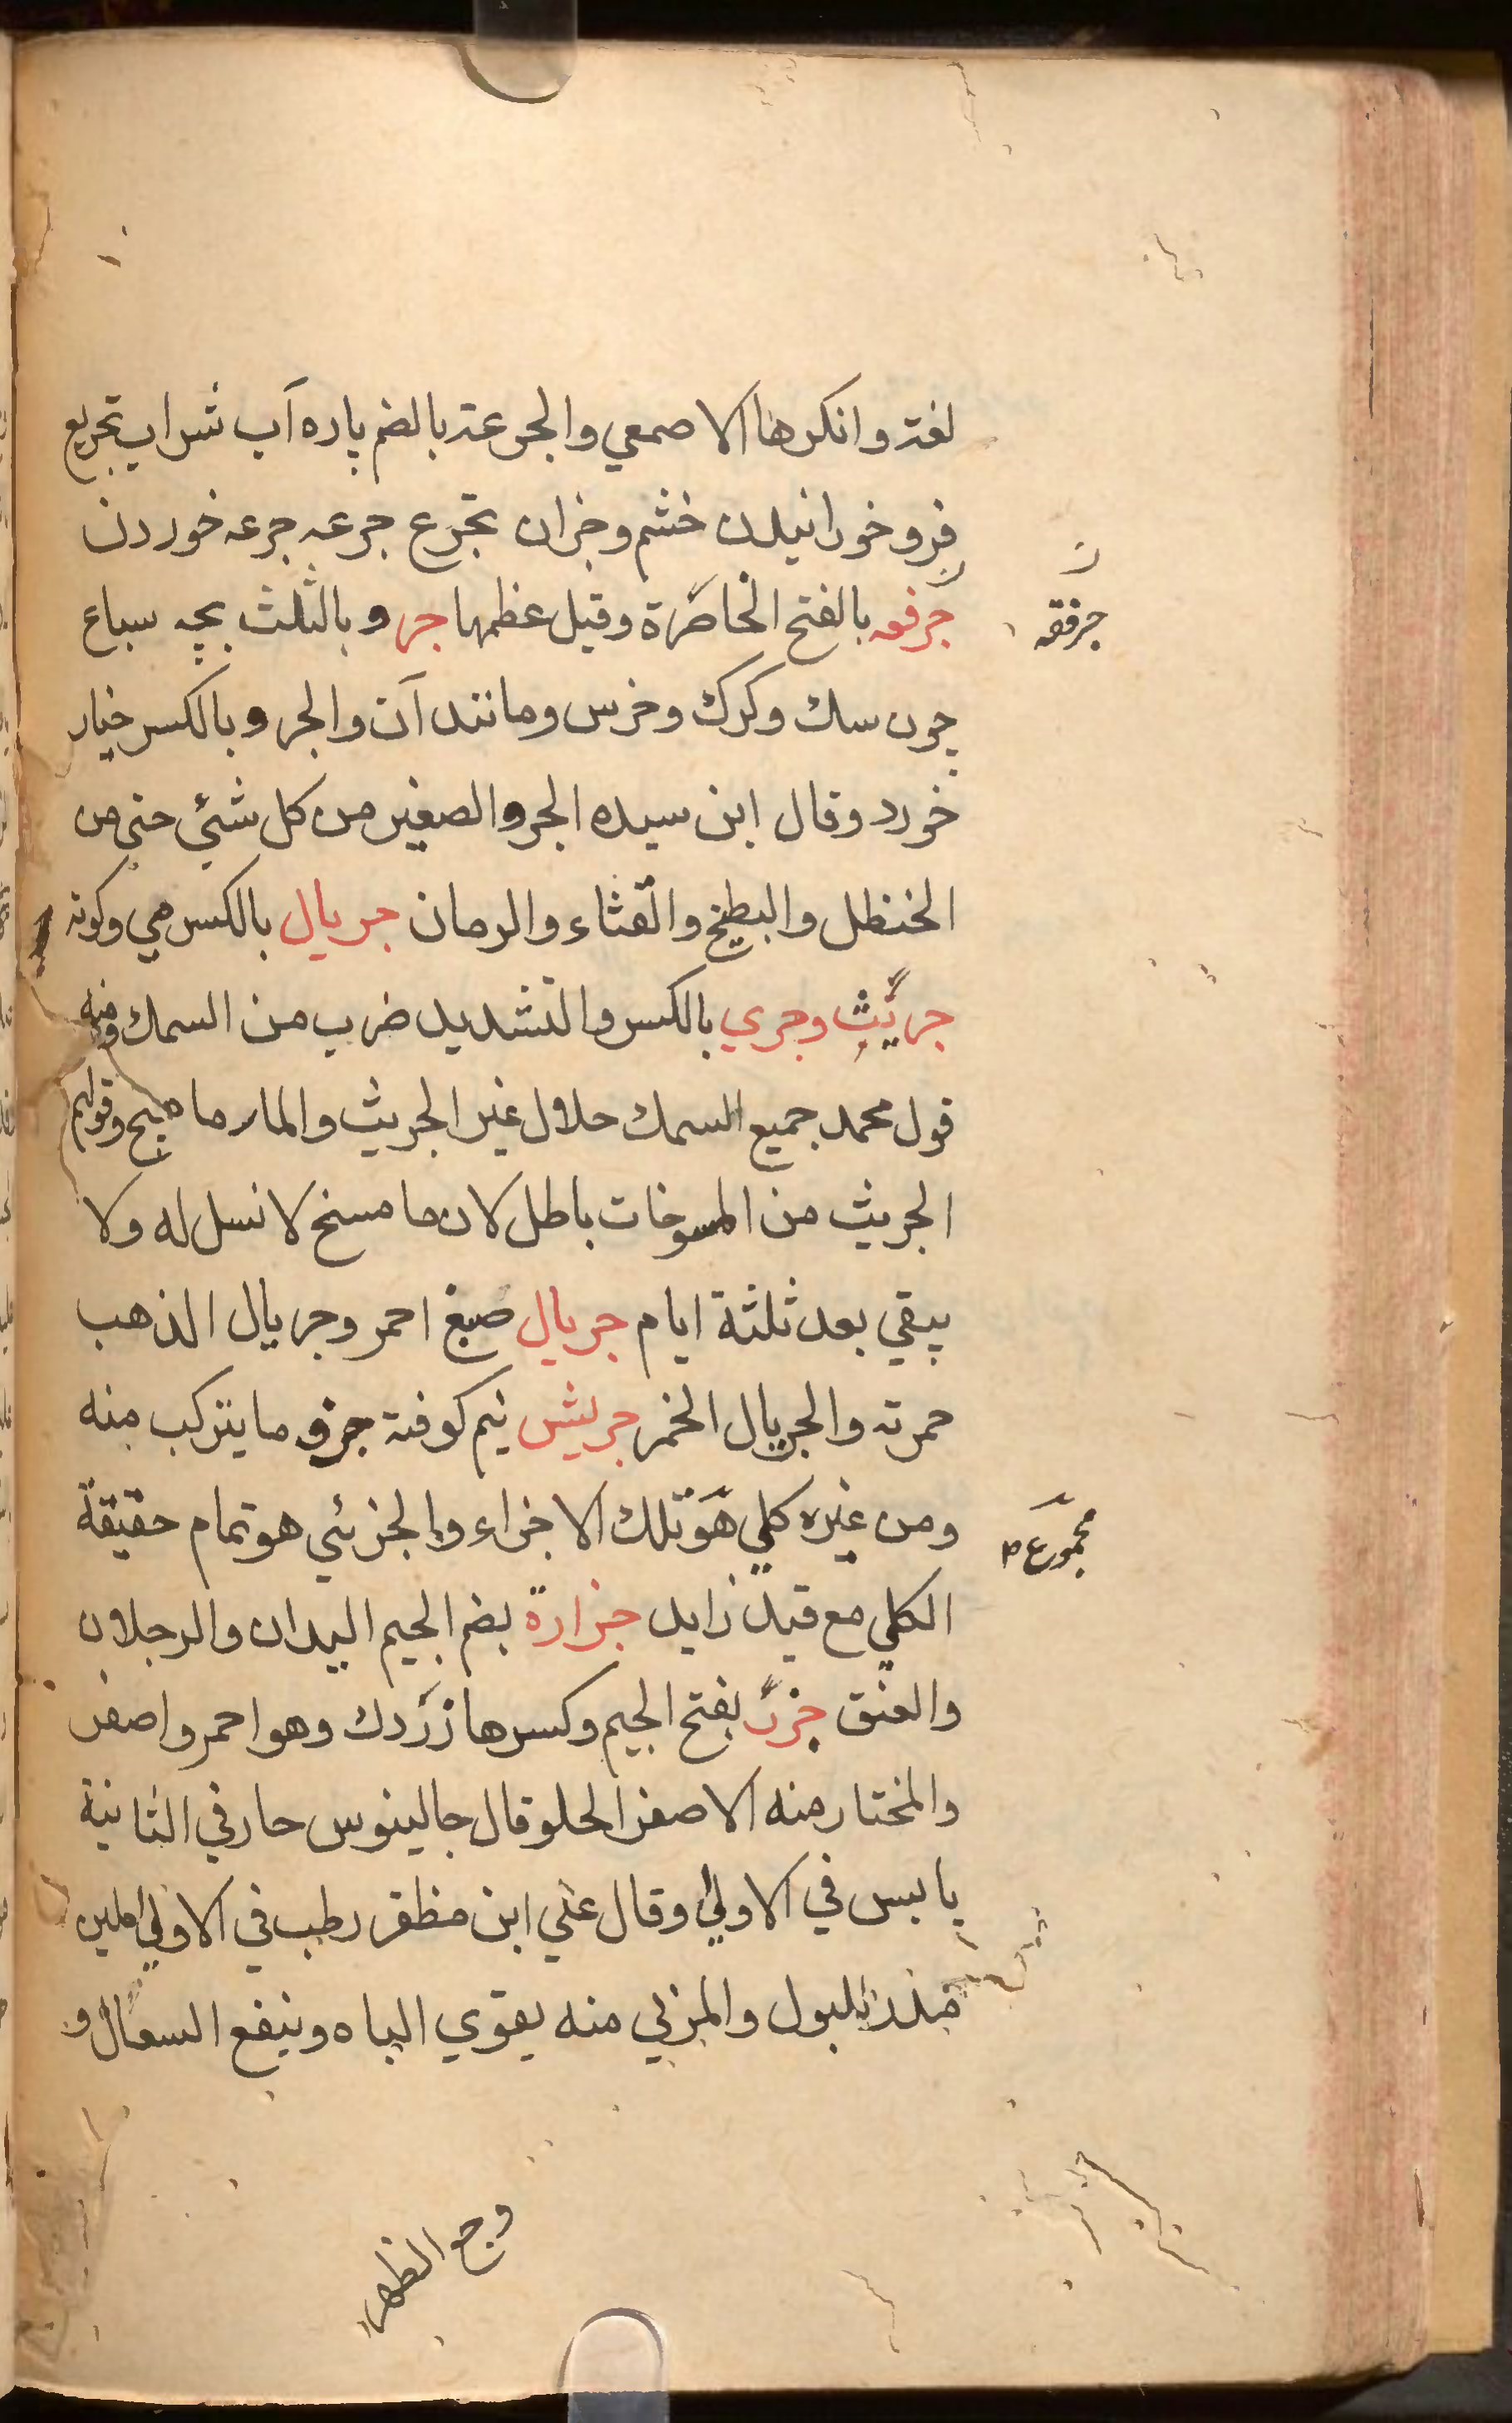 لغة وانكرها الاصمعي والجرعة بالضم پاره آب شراب تجريع
فرو خورانيدن خشم وخزان تجرع جرعه جرعه خوردن
جرفقه
جرفقه بالفتح الخاصرة وقيل عظمها جر و بالثلث بچه سباع
چون سك وكرك وخرس ومانند آن والجر و بالكسر خيار
خورد وقال ابن سيده الجر والصغير من كل شئ حتى من
الحنظل والبطيخ والقثاء والرمان جريال بالكسر مي وكونه
جريّث وجري بالكسر والتشديد ضرب من السمك ومنه
قول محمد جميع السمك حلال غير الجريث والمارماهيج وقولهم
الجريث من المسوخات باطل لان ما مسخ لا نسل له ولا
يبقي بعد ثلثة ايام جريال صبغ احمر وجريال الذهب
حمرته والجريال الخمر جريش نيم كوفتة جزو ما يتركب منه
ومن غيره كلي هو تلك الاجزاء والجزئي هو تمام حقيقة
مجموع
الكلي مع قيد زايد جزارة بضم الجيم اليدان والرجلان
والعنق جزر بفتح الجيم وكسرها زردك وهو احمر واصفر
والمختار منه الاصفر الحلو قال جالينوس حار في الثانية
يابس في الاولي وقال علي ابن مظفر رطب في الاولي ملين
مدر للبول والمربي منه يقوي الباه وينفع السعال و
وجع الظهر